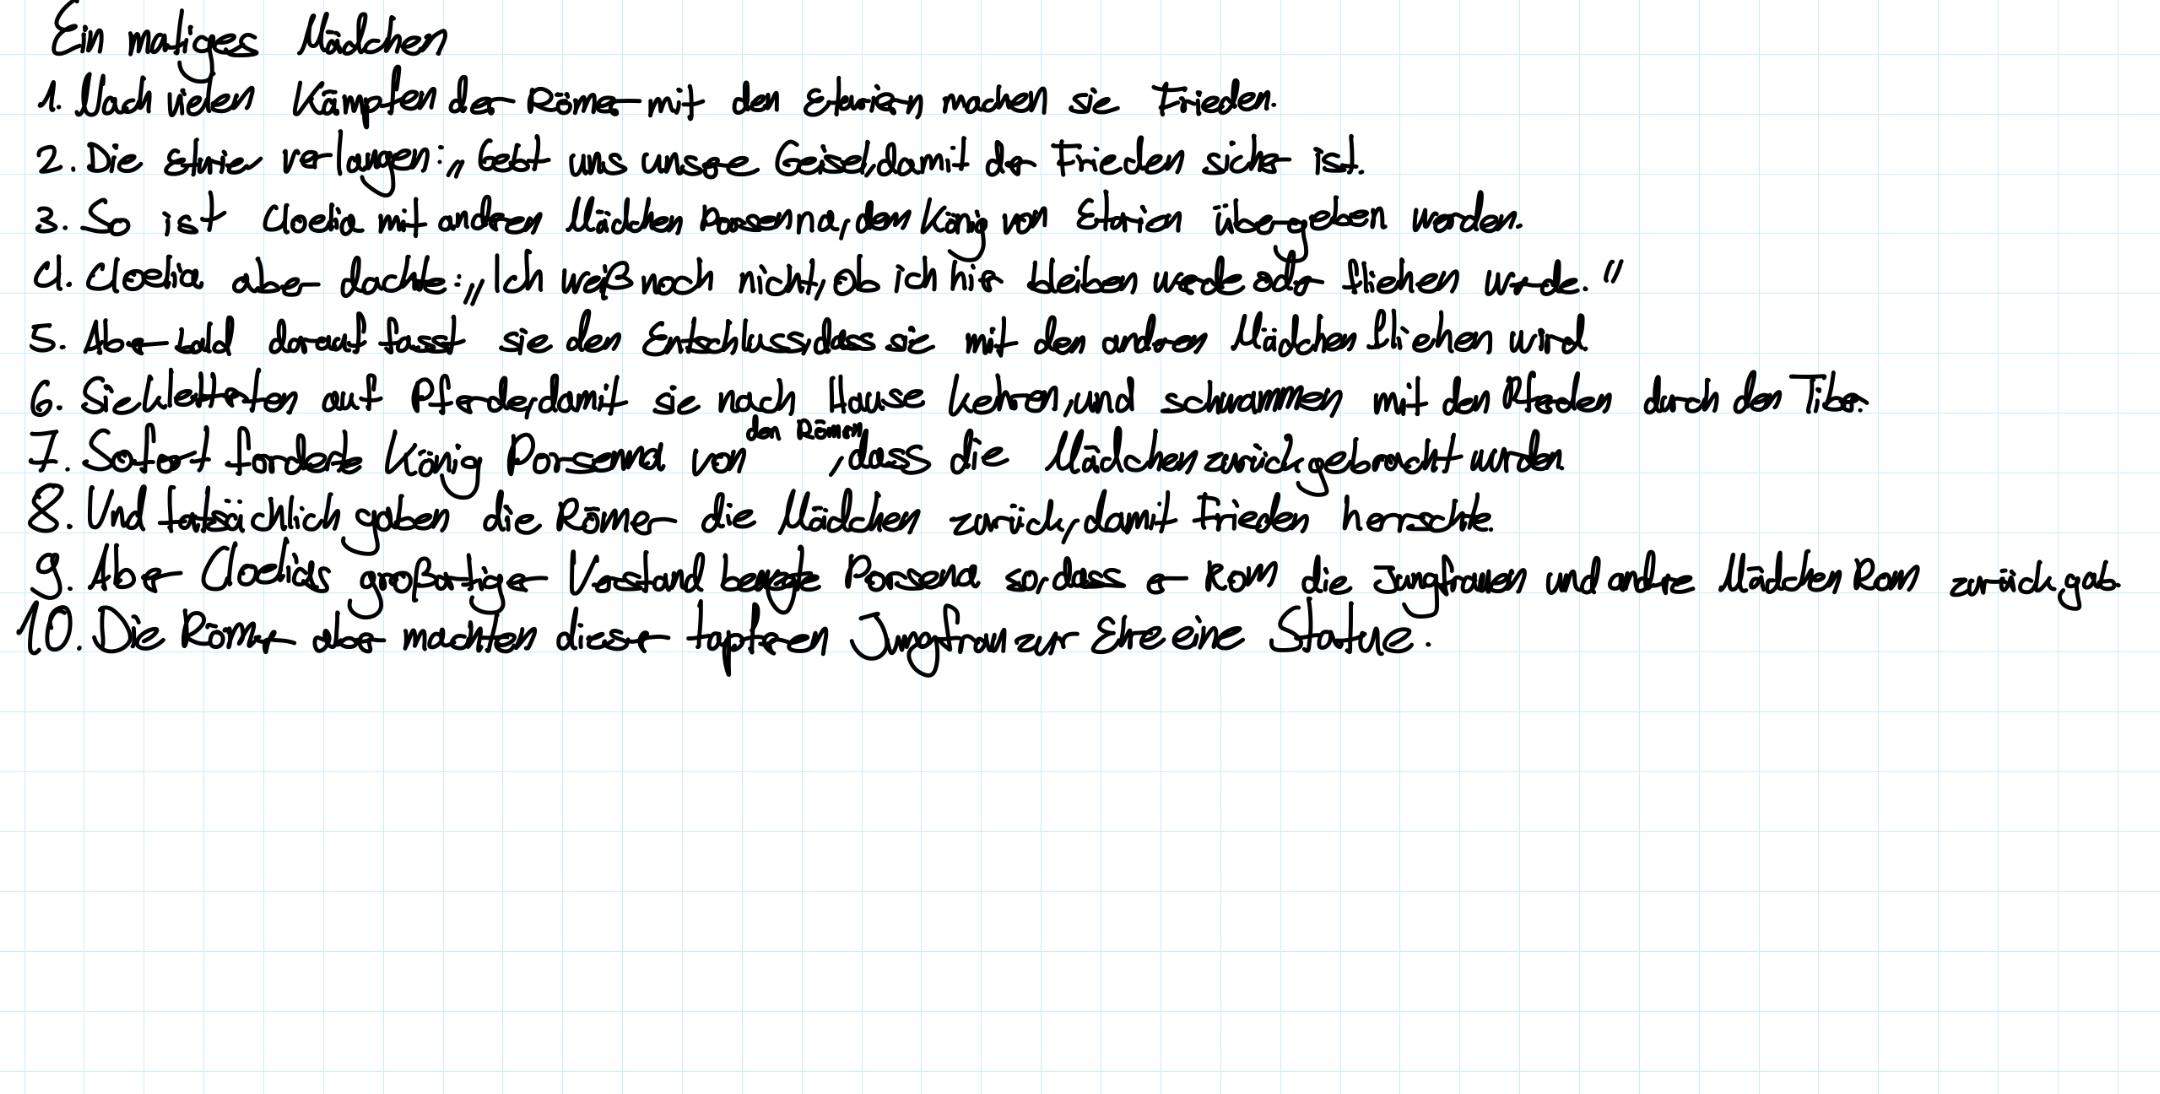 Ein mutiges Mädchen
1. Nach vielen Kämpfen der Römer mit den Etruriern machen sie Frieden.
2. Die Etrurier verlangen: „Gebt uns unsere Geisel, damit der Frieden sicher ist.
3. So ist Cloelia mit anderen Mädchen Porsenna, dem König von Etrurien übergeben worden.
4. Cloelia aber dachte: „Ich weiß noch nicht, ob ich hier bleiben werde oder fliehen werde."
5. Aber bald darauf fasst sie den Entschluss, dass sie mit den anderen Mädchen fliehen wird
6. Sie kletterten auf Pferde, damit sie nach Hause kehren, und schwammen mit den Pferden durch den Tiber.
7. Sofort forderte König Porsenna von den Römern, dass die Mädchen zurückgebracht wurden.
8. Und tatsächlich gaben die Römer die Mädchen zurück, damit Frieden herrschte.
9. Aber Cloelias großartiger Verstand bewegte Porsena so, dass er Rom die Jungfrauen und andre Mädchen Rom zurückgab.
10. Die Römer aber machten dieser tapferen Jungfrau zur Ehre eine Statue.